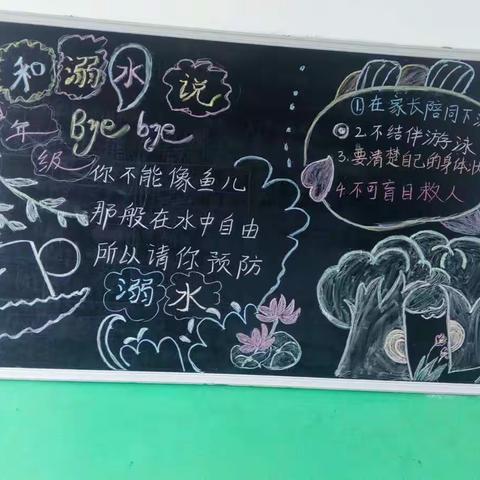 和溺水说
Bye bye
年级
你不能像鱼儿
那般在水中自由
所以请你预防
溺水
①在家长陪同下
2.不结伴游泳
3.要清楚自己的身体
4.不可盲目救人